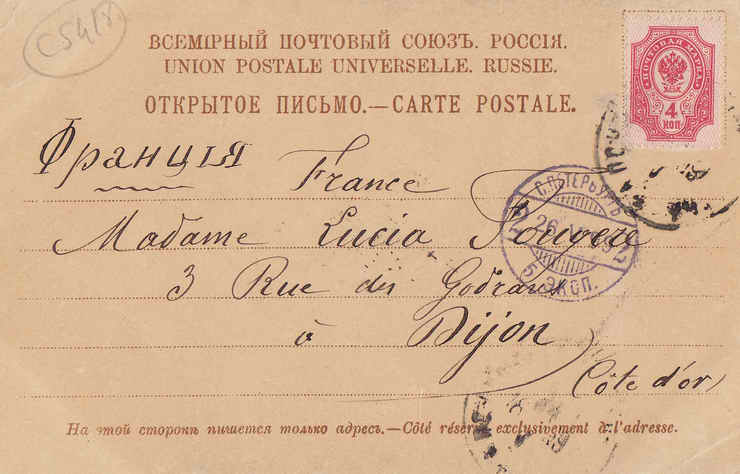 C5418
ВСЕМІРНЫЙ ПОЧТОВЫЙ СОЮЗЪ. РОССІЯ.
UNION POSTALE UNIVERSELLE. RUSSIE.
ОТКРЫТОЕ ПИСЬМО.—CARTE POSTALE.
ПОЧТОВАЯ МАРКА
4
КОП
Франція France
С.ПЕТЕРБУРГЪ
26
5 ЭКСП.
Madame Lucia Fougere
3 Rue des Godrans
à Dijon
(Côte d'or)
На этой сторонѣ пишется только адресъ.—Côté réservé exclusivement à l'adresse.